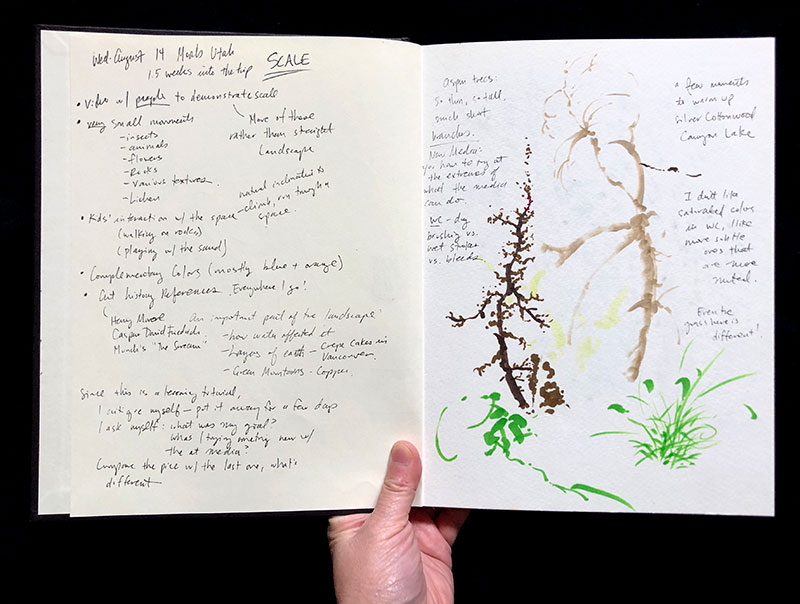 Wed. August 14 Moab Utah
1.5 weeks into the trip
SCALE
• Video w/ people to demonstrate scale
• very small moments
- insects
- animals
- flowers
- Rocks
- various textures.
- Lichen
More of these
rather than straight
Landscape
natural inclination to
- climb, run through a
space.
• Kids' interaction w/ the space
(walking on rocks)
(playing w/ the sand)
• Complementary Colors (mostly blue + orange)
• Art history References. Everywhere I go!
Henry Moore
Caspar David
Munch's "The Scream"
An important part of the landscape:
- how water affected it
- Layers of earth - Crepe Cakes in
Vancouver
- Green Mountains - Copper.
Since this is a learning tutorial,
I critique myself - put it away for a few days
I ask myself: what was my goal?
was I trying something new w/
the art media?
Compare the piece w/ the last one, what's
different
aspen trees:
so thin, so tall,
such short
branches.
New Media:
you have to try at
the extremes of
what the media
can do.
WC - dry
brushing vs.
wet
vs. bleeds
a few moments
to warm up
silver Cottonwood
Canyon Lake
I don't like
saturated colors
in WC, I like
more subtle
ones that
are more
neutral.
Even the
grass here is
different!